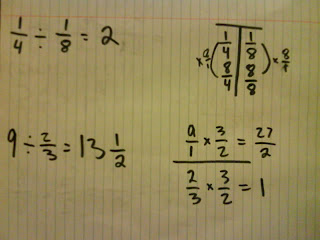 1/4 ÷ 1/8 = 2
1/4 1/8
×8/1
8/4 8/8
9 ÷ 2/3 = 13 1/2
9/1 × 3/2 = 27/2
2/3 × 3/2 = 1